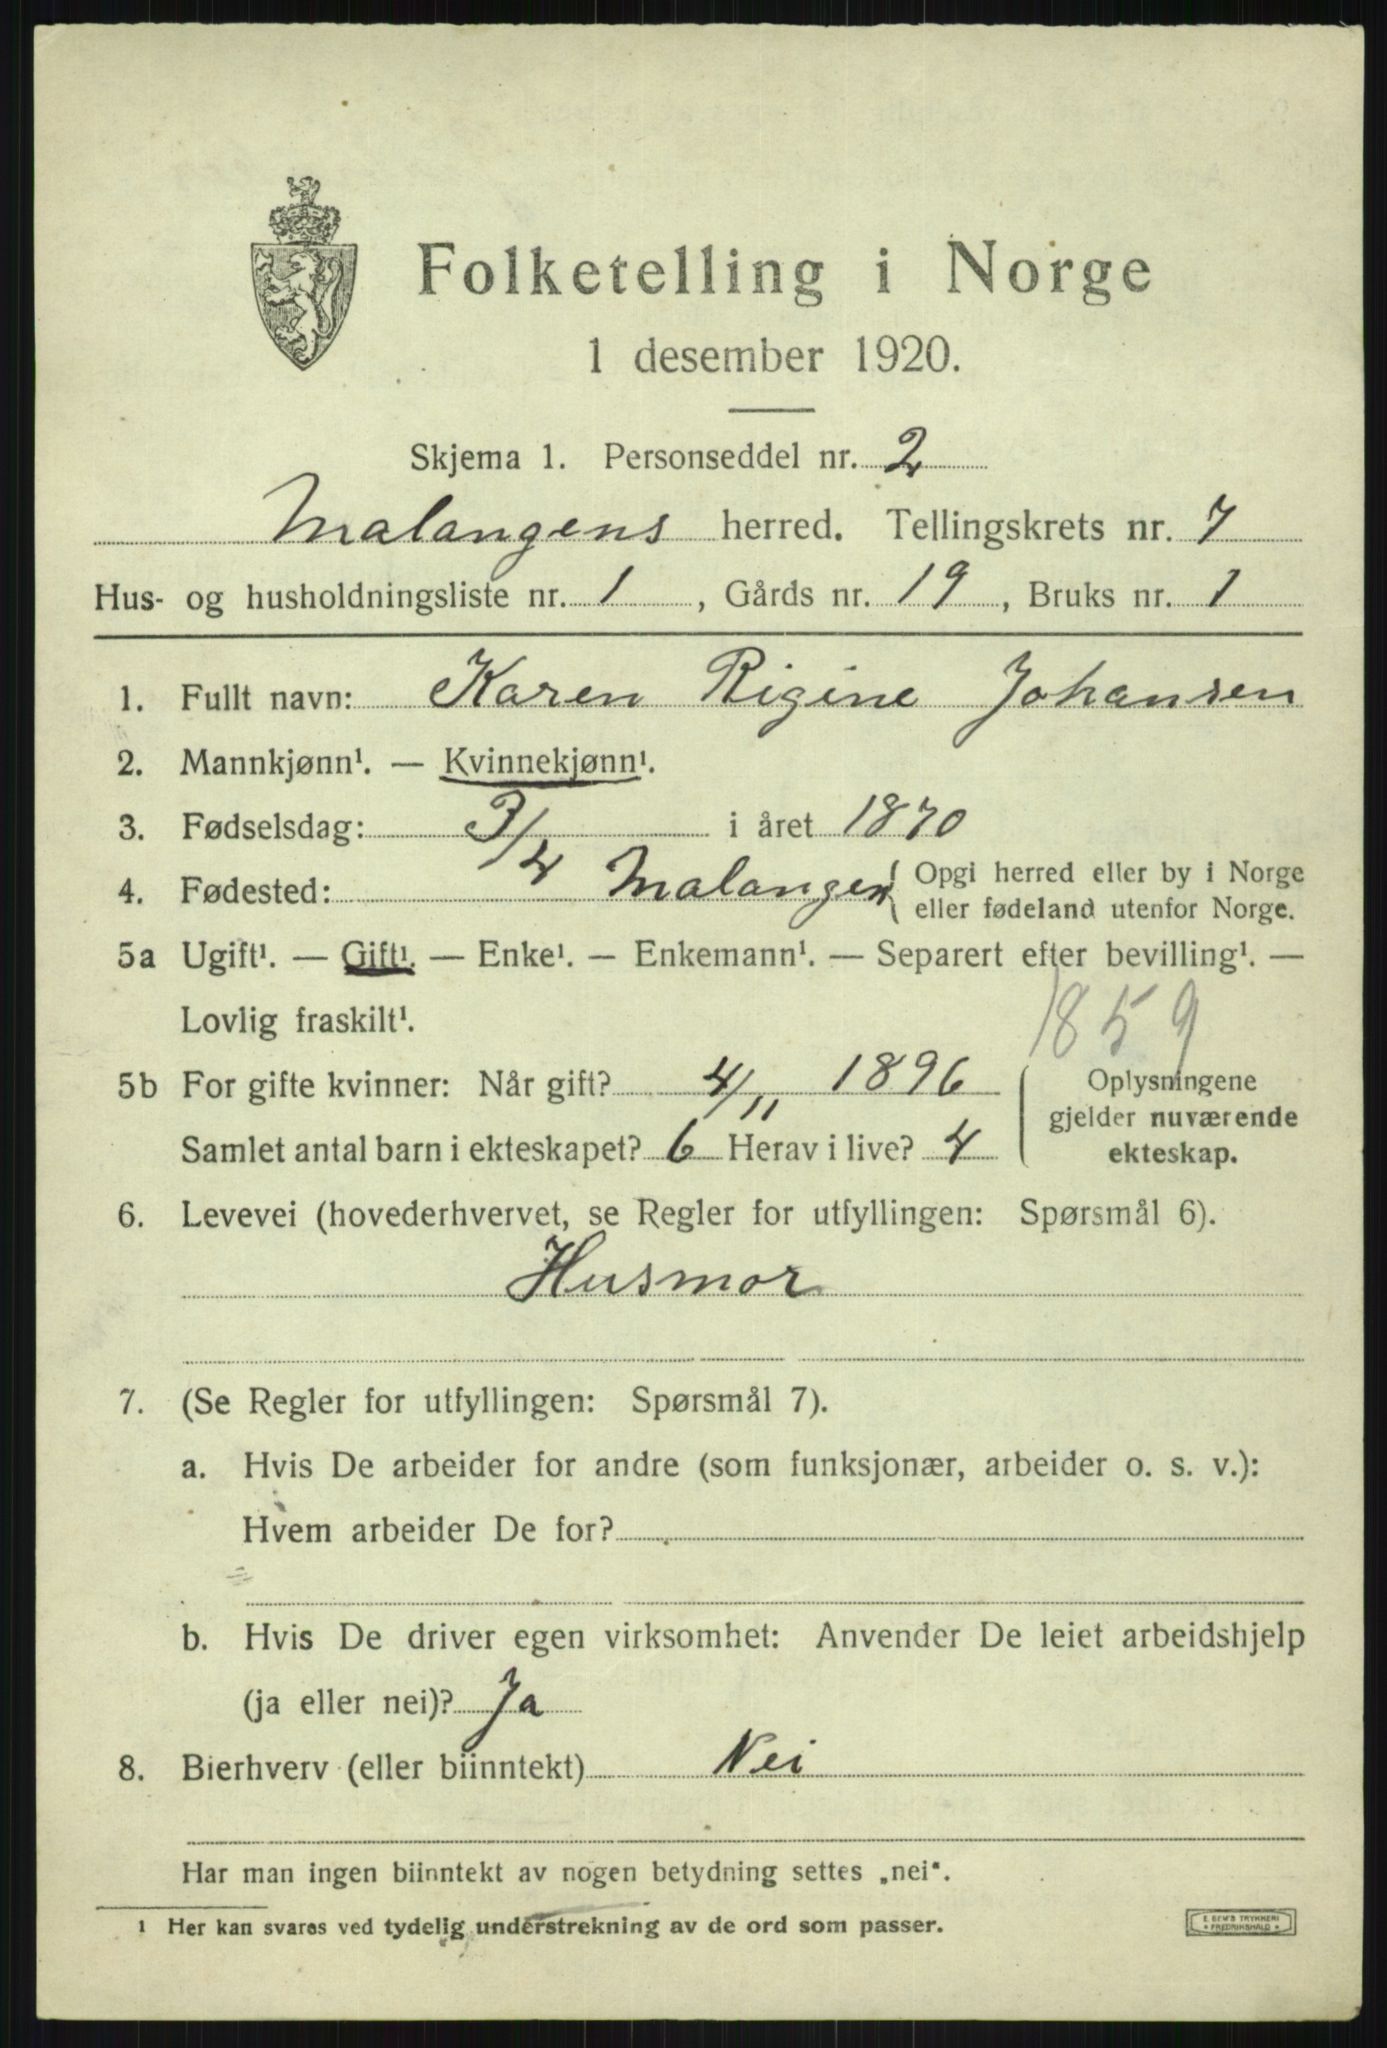 Folketelling i Norge
1 desember 1920.
Skjema 1. Personseddel nr. 2
Malangens herred. Tellingskrets nr. 7
Hus- og husholdningsliste nr. 1, Gårds nr. 19, Bruks nr. 1
1. Fullt navn: Karen Rigine Johansen
2. Mannkjønn¹. — Kvinnekjønn¹.
3. Fødselsdag: 3/4 i året 1870
4. Fødested: Malangen { Opgi herred eller by i Norge
eller fødeland utenfor Norge.
5a Ugift¹. — Gift¹. — Enke¹. — Enkemann¹. — Separert efter bevilling¹. —
Lovlig fraskilt¹.
1859
5b For gifte kvinner: Når gift? 4/11 1896
Samlet antal barn i ekteskapet? 6 Herav i live? 4
( Oplysningene
gjelder nuværende
ekteskap.
6. Levevei (hovederhvervet, se Regler for utfyllingen: Spørsmål 6).
Husmor
7. (Se Regler for utfyllingen: Spørsmål 7).
a. Hvis De arbeider for andre (som funksjonær, arbeider o. s. v.):
Hvem arbeider De for?
b. Hvis De driver egen virksomhet: Anvender De leiet arbeidshjelp
(ja eller nei)? Ja
8. Bierhverv (eller biinntekt) Nei
Har man ingen biinntekt av nogen betydning settes „nei“.
¹ Her kan svares ved tydelig understrekning av de ord som passer.
TRYKKERI
FREDRIKSHALD